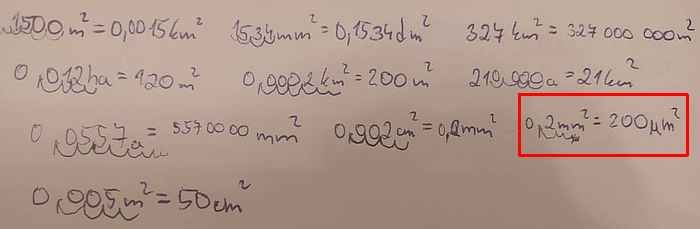 1500 m² = 0,0015 km² 15,34 mm² = 0,1534 dm² 327 km² = 327 000 000 m²
0,012 ha = 120 m² 0,0002 km² = 200 m² 210 000 a = 21 km²
0,0557 a = 5570000 mm² 0,002 cm² = 0,2 mm² 0,2 mm² = 200 μm²
0,005 m² = 50 cm²